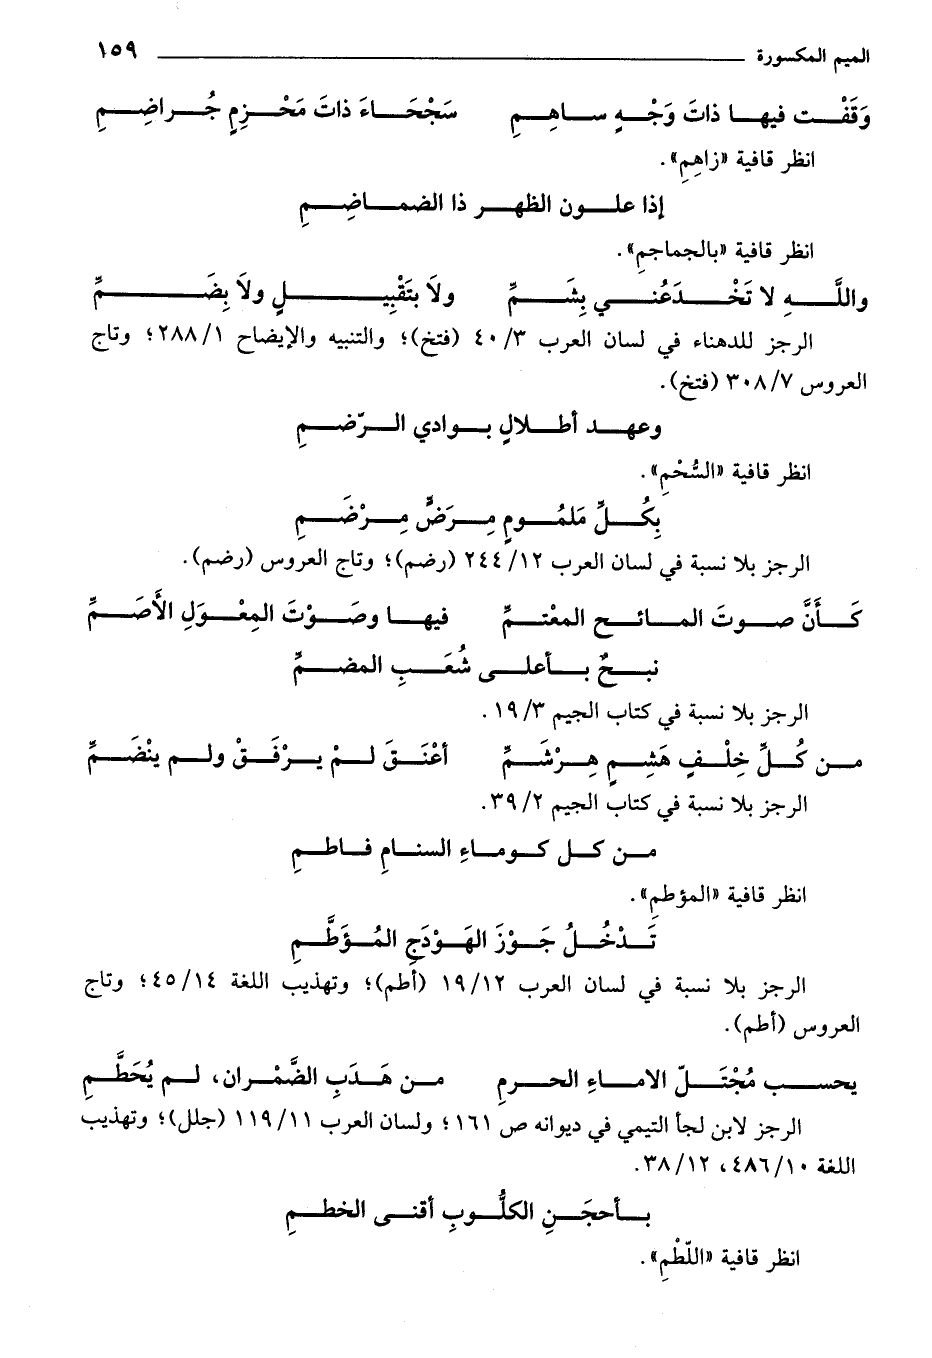 الميم المكسورة ١٥٩
وَقَفْت فيها ذاتَ وَجْهٍ ساهِمِ سَجْحَاءَ ذاتَ مَحْزِمٍ جُراضِمِ
انظر قافية «زاهِمِ».
إذا علون الظهر ذا الضماضِمِ
انظر قافية «بالجماجمِ».
واللَّهِ لا تَخْدَعُني بِشَمِّ ولَا بتَقْبِيلٍ ولَا بِضَمِّ
الرجز للدهناء في لسان العرب ٤٠/٣ (فتخ)؛ والتنبيه والإيضاح ٢٨٨/١؛ وتاج
العروس ٣٠٨/٧ (فتخ).
وعهد أطلالٍ بوادي الرّضمِ
انظر قافية «السُّحْمِ».
بِكُلِّ مَلمُومٍ مِرَضٍّ مِرْضَمِ
الرجز بلا نسبة في لسان العرب ٢٤٤/١٢ (رضم)؛ وتاج العروس (رضم).
كَأَنَّ صوتَ المائح المعْتمِّ فيها وصَوْتَ المِعْوَلِ الأَصَمِّ
نبحٌ بأعلى شُعَبِ المضمِّ
الرجز بلا نسبة في كتاب الجيم ١٩/٣.
من كُلِّ خِلْفٍ هَشِمٍ هِرْشَمِّ أعْنَقَ لمْ يرْفَقْ ولم ينْضَمِّ
الرجز بلا نسبة في كتاب الجيم ٣٩/٢.
من كل كوماءِ السنامِ فاطمِ
انظر قافية «المؤطمِ».
تَدْخُلُ جَوْزَ الهَوْدَجِ المُؤَطَّمِ
الرجز بلا نسبة في لسان العرب ١٩/١٢ (أطم)؛ وتهذيب اللغة ٤٥/١٤؛ وتاج
العروس (أطم).
يحسب مُجْتَلّ الاماءِ الحرمِ من هَدَبِ الضَّمْران، لم يُحَطَّمِ
الرجز لابن لجأ التيمي في ديوانه ص ١٦١؛ ولسان العرب ١١٩/١١ (جلل)؛ وتهذيب
اللغة ٤٨٦/١٠، ٣٨/١٢.
بأحجَنِ الكلُّوبِ أقنى الخطمِ
انظر قافية «اللّطْمِ».